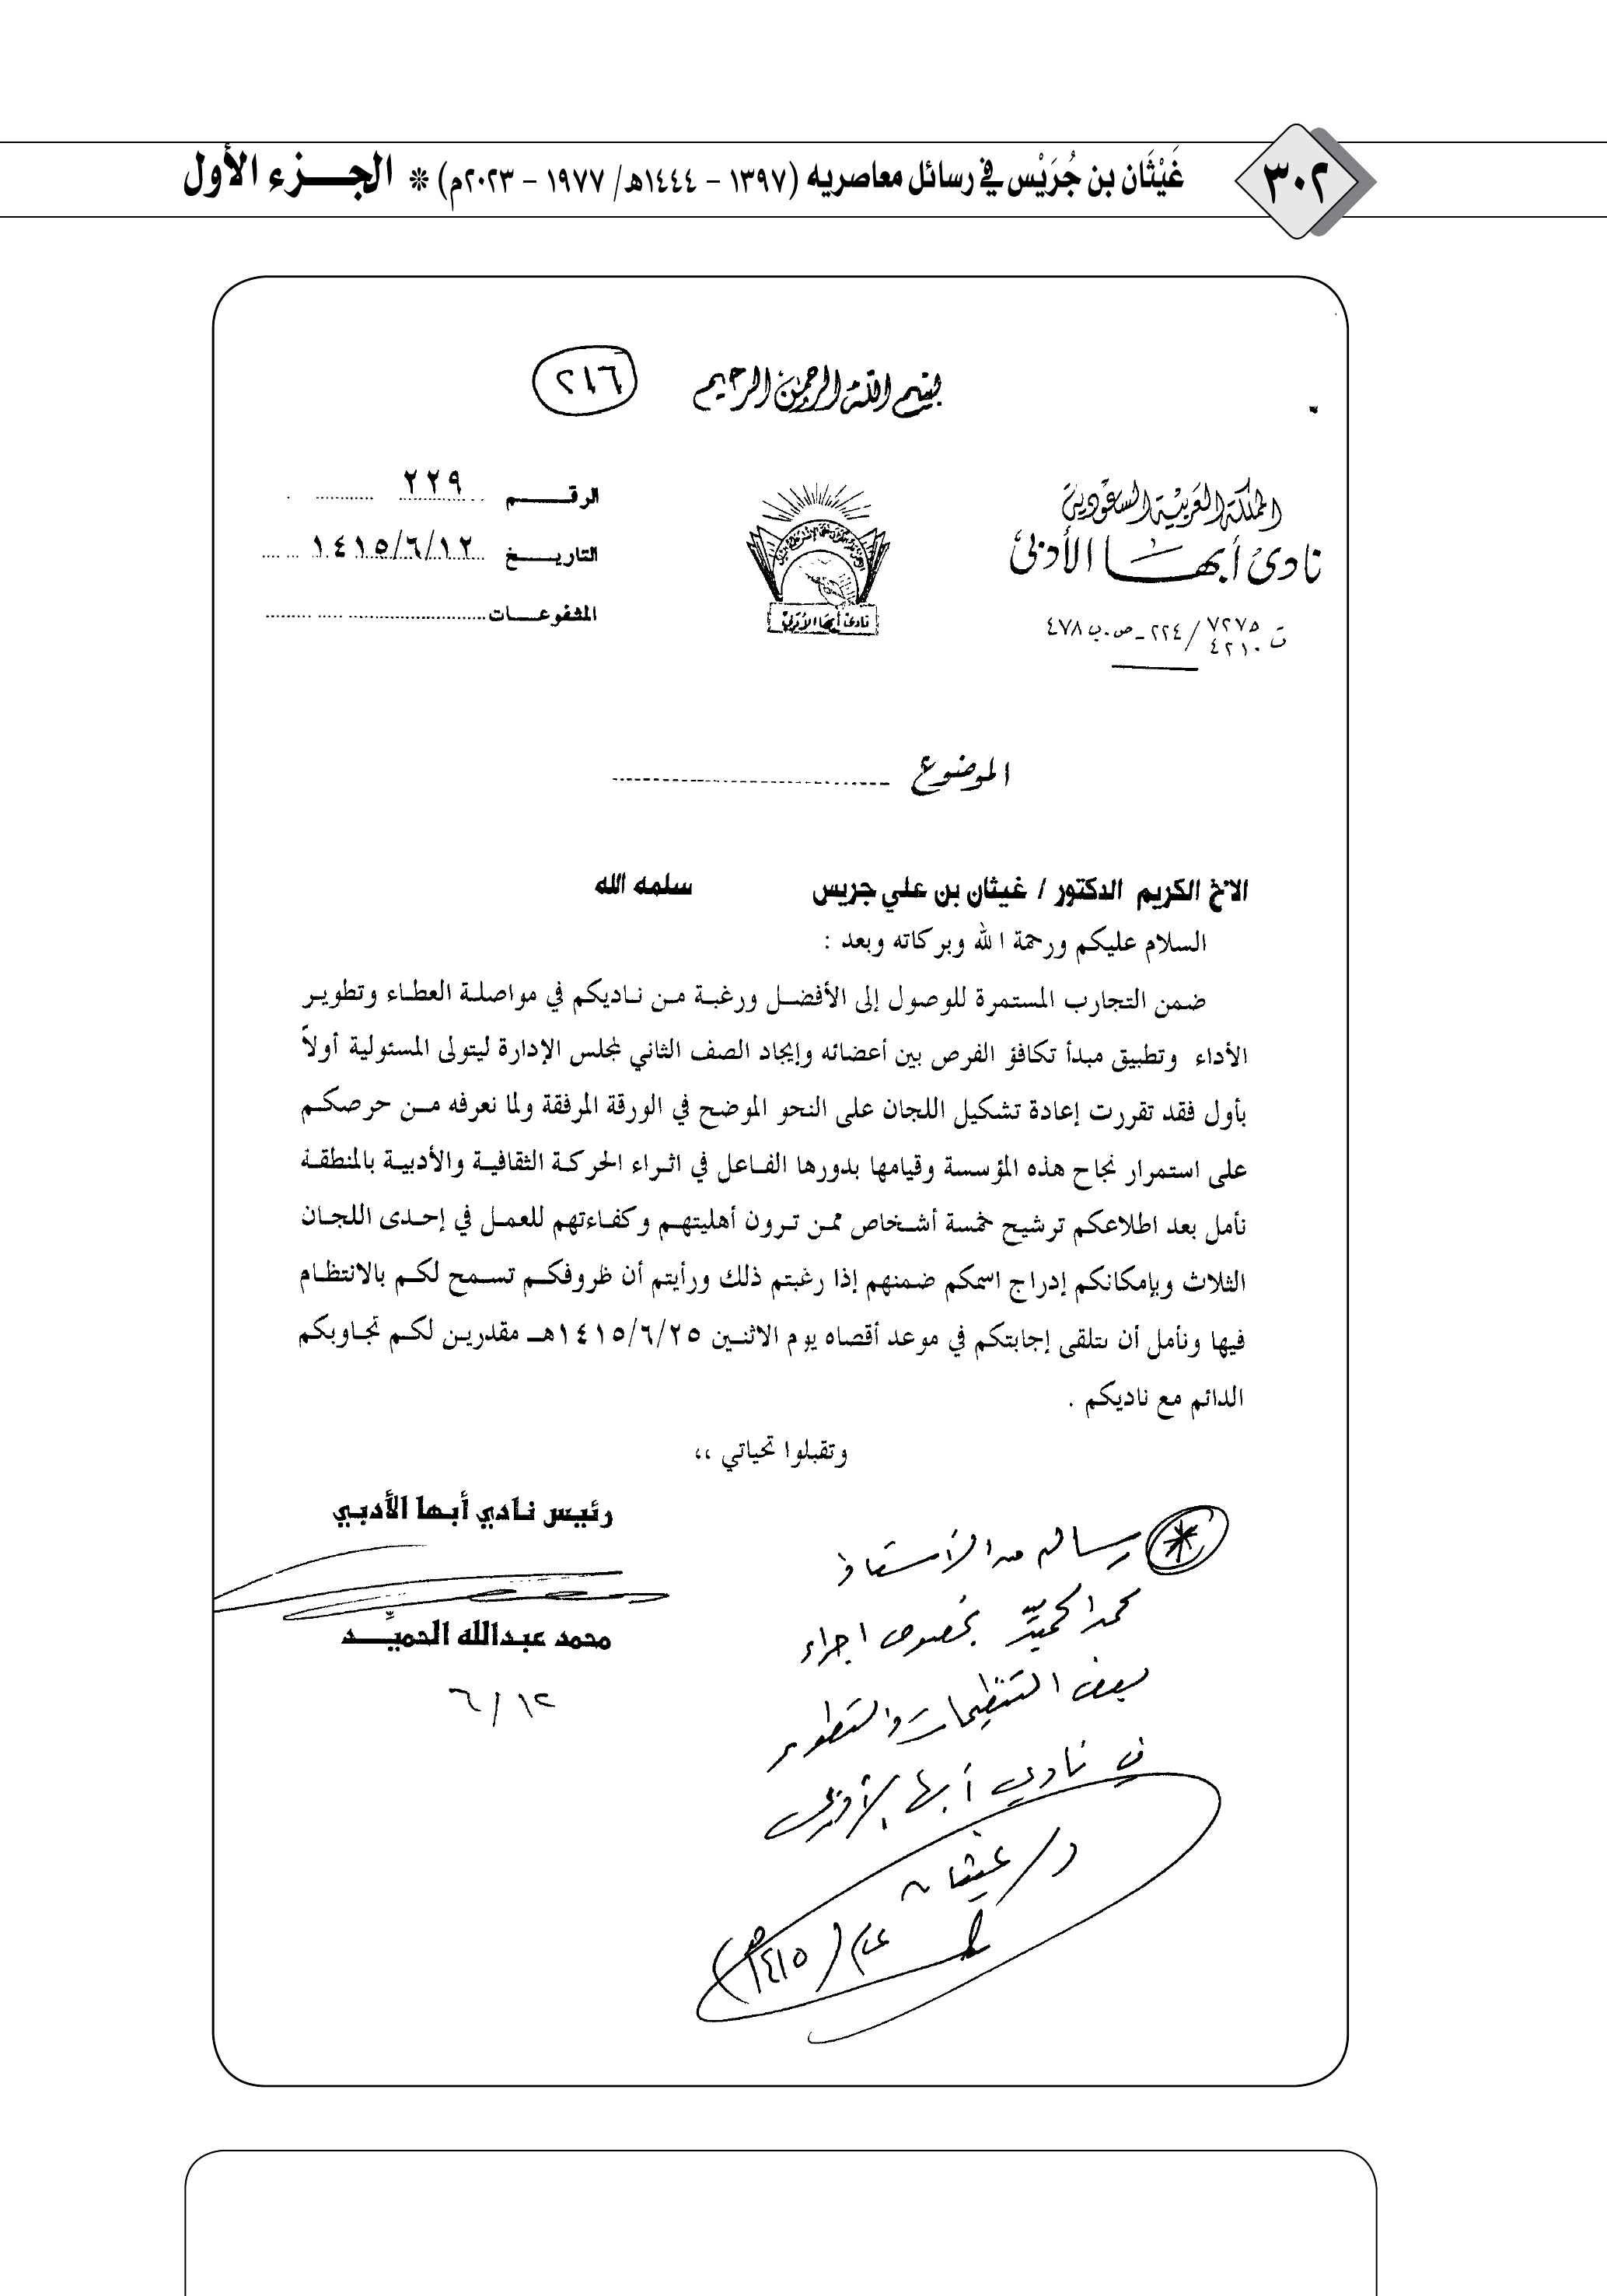 ٣٠٢
غَيْثَان بن جُرَيْس في رسائل معاصريه (١٣٩٧ – ١٤٤٤هـ/ ١٩٧٧ – ٢٠٢٣م) * الجـــزء الأول
بسم الله الرحمن الرحيم
٢١٦
المملكة العربية السعودية
نادى أبهـــا الأدبى
ت ٧٢٧٥ / ٢٢٤ ـ ص.ب ٤٧٨
٤٢١٠
نادى أبها الأدبى
الرقـــم ٢٢٩
التاريـــخ ١٤١٥/٦/١٢
المشفوعـــات
الموضوع
الاخ الكريم الدكتور / غيثان بن علي جريس سلمه الله
السلام عليكم ورحمة الله وبركاته وبعد :
ضمن التجارب المستمرة للوصول إلى الأفضل ورغبة من ناديكم في مواصلة العطاء وتطوير
الأداء وتطبيق مبدأ تكافؤ الفرص بين أعضائه وإيجاد الصف الثاني لمجلس الإدارة ليتولى المسئولية أولاً
بأول فقد تقررت إعادة تشكيل اللجان على النحو الموضح في الورقة المرفقة ولما نعرفه من حرصكم
على استمرار نجاح هذه المؤسسة وقيامها بدورها الفاعل في اثراء الحركة الثقافية والأدبية بالمنطقة
نأمل بعد اطلاعكم ترشيح خمسة أشخاص ممن ترون أهليتهم وكفاءتهم للعمل في إحدى اللجان
الثلاث وبإمكانكم إدراج اسمكم ضمنهم إذا رغبتم ذلك ورأيتم أن ظروفكم تسمح لكم بالانتظام
فيها ونأمل أن نتلقى إجابتكم في موعد أقصاه يوم الاثنين ١٤١٥/٦/٢٥هـ مقدرين لكم تجاوبكم
الدائم مع ناديكم .
وتقبلوا تحياتي ،،
رئيس نادي أبها الأدبي
محمد عبدالله الحميّـــد
٦/١٢
* رسالة من الأستاذ
محمد الحميّد بخصوص اجراء
بعض التنظيمات والتطوير
في نادي أبها الأدبي
د/ غيثان
عام (١٤١٥هـ)